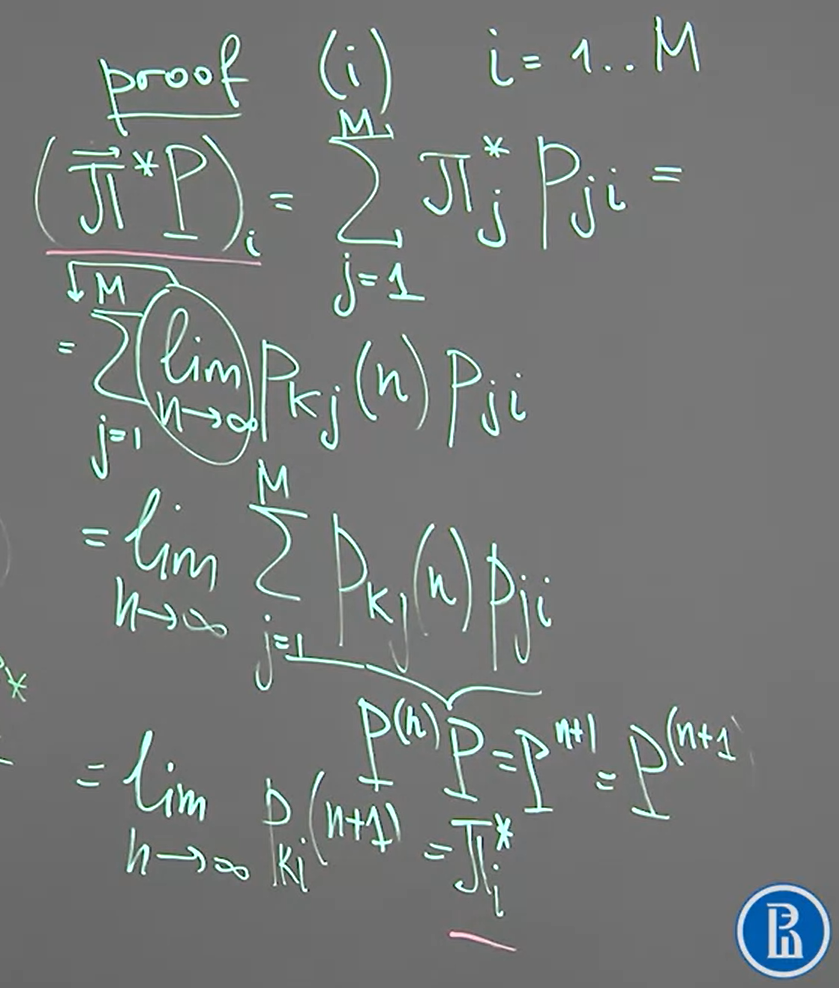 proof (i) i = 1..M
(π⃗*P)ᵢ = ∑_{j=1}^{M} π*_j p_{ji} =
= ∑_{j=1}^{M} lim_{n→∞} p_{kj}(n) p_{ji}
= lim_{n→∞} ∑_{j=1}^{M} p_{kj}(n) p_{ji}
P^{(n)} P = P^{n+1} = P^{(n+1
= lim_{n→∞} p_{ki}(n+1) = π*_i